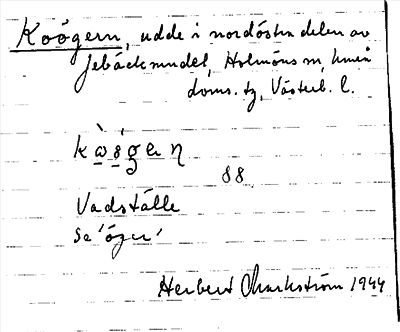 Koögern, udde i nordöstra delen av
Jebäckmudel, Holmöns sn, Umeå
doms. tg, Västerb. l.
88
Vadställe
se 'öger'
Herbert Markström 1944